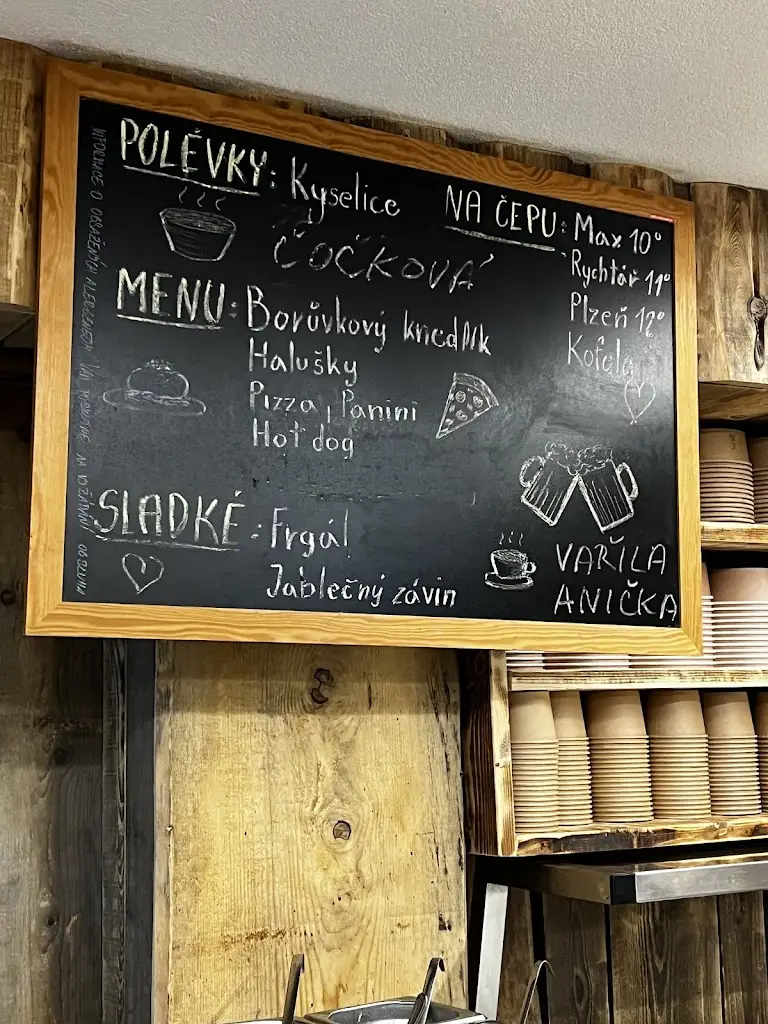 POLÉVKY: Kyselice
ČOČKOVÁ
MENU: Borůvkový knedlík
Halušky
Pizza, Panini
Hot dog
SLADKÉ: Frgál
Jablečný závin
NA ČEPU: Max 10°
Rychtář 11°
Plzeň 12°
Kofola
VAŘILA
ANIČKA
INFORMACE O OBSAŽENÝCH ALERGENECH VÁM POSKYTNE NA VYŽÁDÁNÍ OBSLUHA